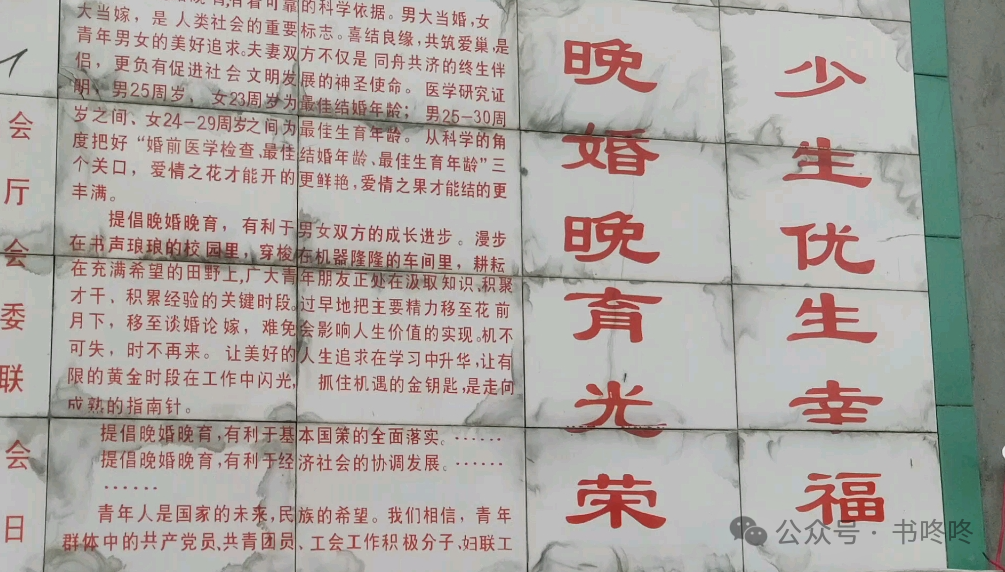 少生优生幸福
晚婚晚育光荣
有着可靠的科学依据。男大当婚,女
大当嫁,是人类社会的重要标志。喜结良缘,共筑爱巢,是
青年男女的美好追求。夫妻双方不仅是同舟共济的终生伴
侣,更负有促进社会文明发展的神圣使命。医学研究证
明,男25周岁、女23周岁为最佳结婚年龄;男25-30周
岁之间、女24-29周岁之间为最佳生育年龄。从科学的角
度把好“婚前医学检查、最佳结婚年龄、最佳生育年龄”三
个关口,爱情之花才能开的更鲜艳,爱情之果才能结的更
丰满。
提倡晚婚晚育,有利于男女双方的成长进步。漫步
在书声琅琅的校园里,穿梭在机器隆隆的车间里,耕耘
在充满希望的田野上,广大青年朋友正处在汲取知识、积聚
才干,积累经验的关键时段。过早地把主要精力移至花前
月下,移至谈婚论嫁,难免会影响人生价值的实现。机不
可失,时不再来。让美好的人生追求在学习中升华,让有
限的黄金时段在工作中闪光,抓住机遇的金钥匙,是走向
成熟的指南针。
提倡晚婚晚育,有利于基本国策的全面落实。……
提倡晚婚晚育,有利于经济社会的协调发展。……
……
青年人是国家的未来,民族的希望。我们相信,青年
群体中的共产党员、共青团员、工会工作积极分子、妇联工
会
厅
会
委
联
会
日
公众号·书咚咚